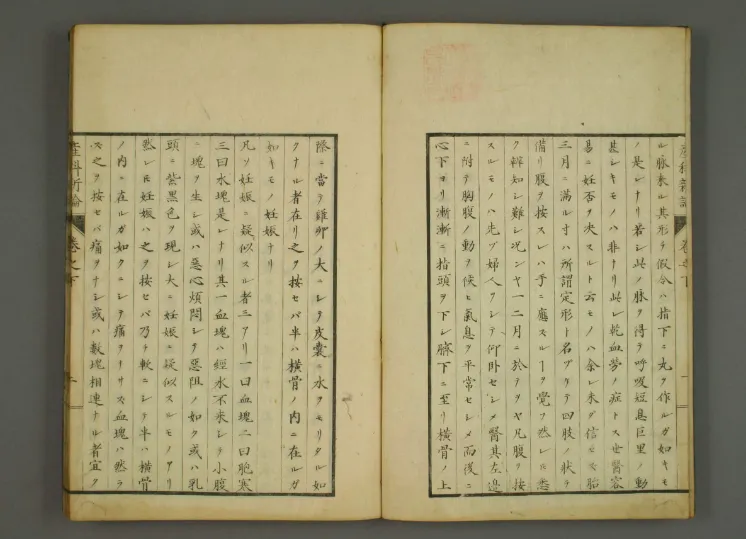 ル脉来ル其形チ假令ハ指下ニ丸ヲ作ルガ如キモ
ノ是レナリ若シ此ノ脉ヲ得テ呼吸短息巨里ノ動
甚シキモノハ非ナリ此レ乾血勞ノ症トス世醫容
易ニ妊否ヲ決スルト云モノハ余レ未ダ信セズ胎
三月ニ滿ル寸ハ所謂定形ト名ヅケテ四肢ノ狀チ
備リ腹ヲ按スレハ手ニ應スルヿヲ覺フ然レ𪜈悉
ク辨知シ難シ况ンヤ一二月ニ於テヲヤ凡腹ヲ按
スルモノハ先ヅ婦人ヲシテ仰卧セシメ醫其左邊
ニ附テ胸腹ノ動ヲ候ヒ氣息ヲ平常セシメ而後ニ
心下ヨリ漸漸ニ指頭ヲ下シ臍下ニ至リ橫骨ノ上
産科新論
卷之下
際ニ當テ雞卵ノ大ニシテ皮囊ニ水ヲモリタル如
クナル者在リ之ヲ按セバ半ハ橫骨ノ内ニ在ルガ
如キモノ妊娠ナリ
凡ソ妊娠ニ疑似スル者三アリ一曰血塊二曰胞寒
三曰水塊是レナリ其一血塊ハ經水不来シテ小腹
ニ塊ヲ生シ或ハ惡心煩悶シテ惡阻ノ如ク或ハ乳
頭ニ紫黑色ヲ現シ大ニ妊娠ニ疑似スルモノアリ
然レ𪜈妊娠ハ之ヲ按セバ乃チ軟ニシテ半ハ橫骨
ノ内ニ在ルガ如クニシテ痛ヲナサズ血塊ハ然ラ
ズ之ヲ按セバ痛ヲナシ或ハ數塊相連ナル者宜ク
産科新論
卷之下